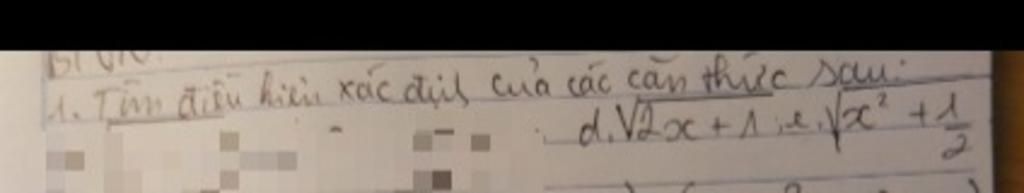 1. Tìm điều kiện xác định của các căn thức sau:
d. √2x + 1 ; e. √x² + 1/2